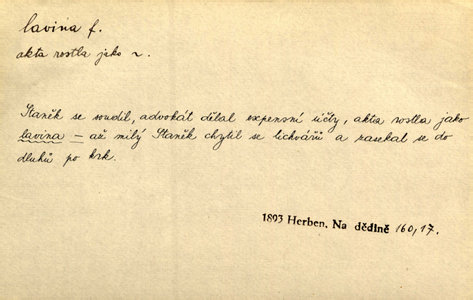 lavina f.
akta rostla jako ~.
Staněk se soudil, advokát dělal expensní účty, akta rostla jako
lavina – až milý Staněk chytil se lichvářů a zasekal se do
dluhů po krk.
1893 Herben, Na dědině 160,17.